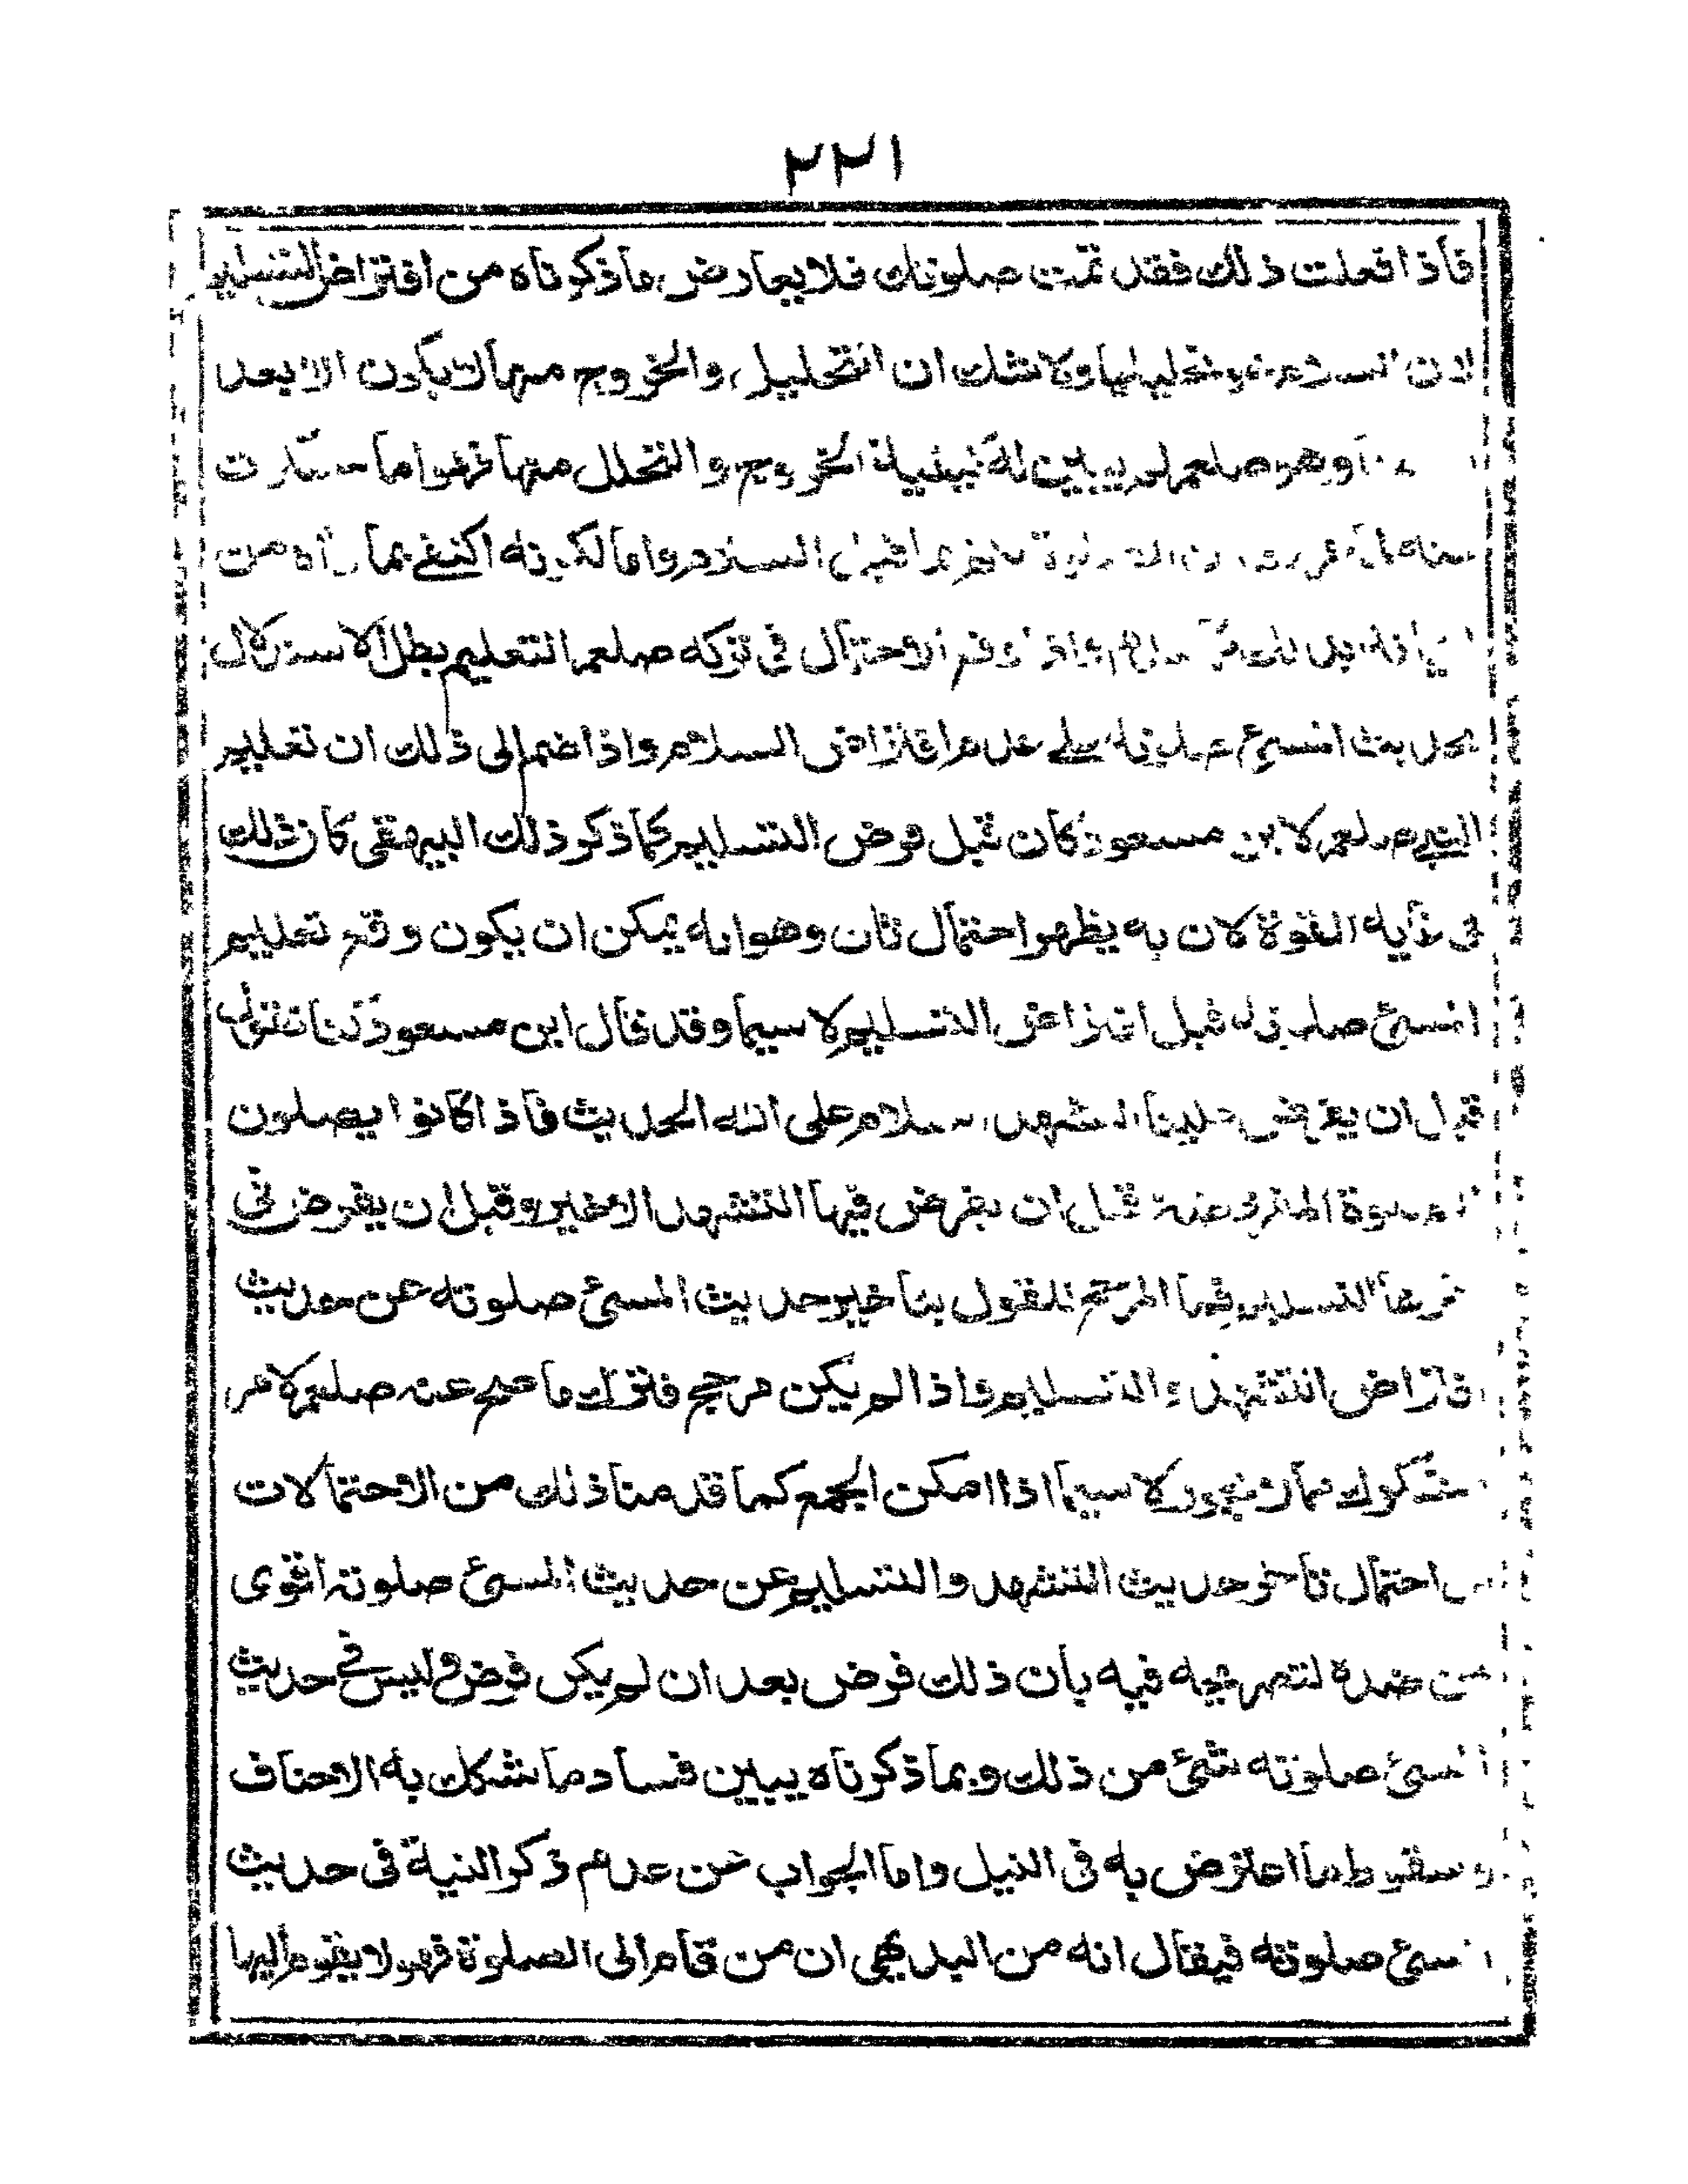 ٢٢١
فاذا فعلت ذلك فقد تمت صلوتك فلا يعارض ما ذكرناه من افتراض التسليم
لان تحليلها ولا شك ان التحليل والخروج منها لا يكون الا بعد
وهو صلعم لم يبين له كيفية الخروج والتحلل منها فهو اما
السلام واما لكونه اكتفى بما رآه من
الاحتمال فى تركه صلعم التعليم بطل الاستدلال
بحديث المسئ صلوته على عدم افتراض السلام واذا ضم الى ذلك ان تعليم
النبى صلعم لابن مسعود كان قبل فرض التسليم كما ذكر ذلك البيهقى كان ذلك
فى غاية القوة لان به يظهر احتمال ثان وهو انه يمكن ان يكون وقع تعليم
المسئ صلوته قبل افتراض التسليم لا سيما وقد قال ابن مسعود كنا نقول
قبل ان يفرض علينا التشهد السلام على الله الحديث فاذا كانوا يصلون
قبل ان يفرض فيها التشهد الاخير وقبل ان يفرض فى
التسليم فما المرجح للقول بتأخير حديث المسئ صلوته عن حديث
افتراض التشهد والتسليم واذا لم يكن مرجح فترك ما صح عنه صلعم لامر
مشكوك مما لا يجوز لا سيما اذا امكن الجمع كما قدمنا ذلك من الاحتمالات
احتمال تأخر حديث التشهد والتسليم عن حديث المسئ صلوته اقوى
من ضده لتصريحه فيه بان ذلك فرض بعد ان لم يكن فرض وليس فى حديث
المسئ صلوته شئ من ذلك وبما ذكرناه يبين فساد ما شكك به الاحناف
وسقوط ما اعترض به فى النيل واما الجواب عن عدم ذكر النية فى حديث
المسئ صلوته فيقال انه من البديهى ان من قام الى الصلوة فهو لا يقوم اليها